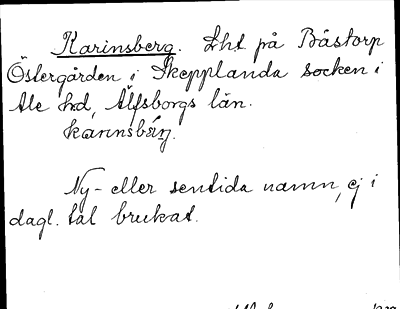 Karinsberg. Lht på Båstorp
Östergården i Skepplanda socken i
Ale hd, Älfsborgs län.
karinsbärj.
Ny- eller sentida namn, ej i
dagl. tal brukat.